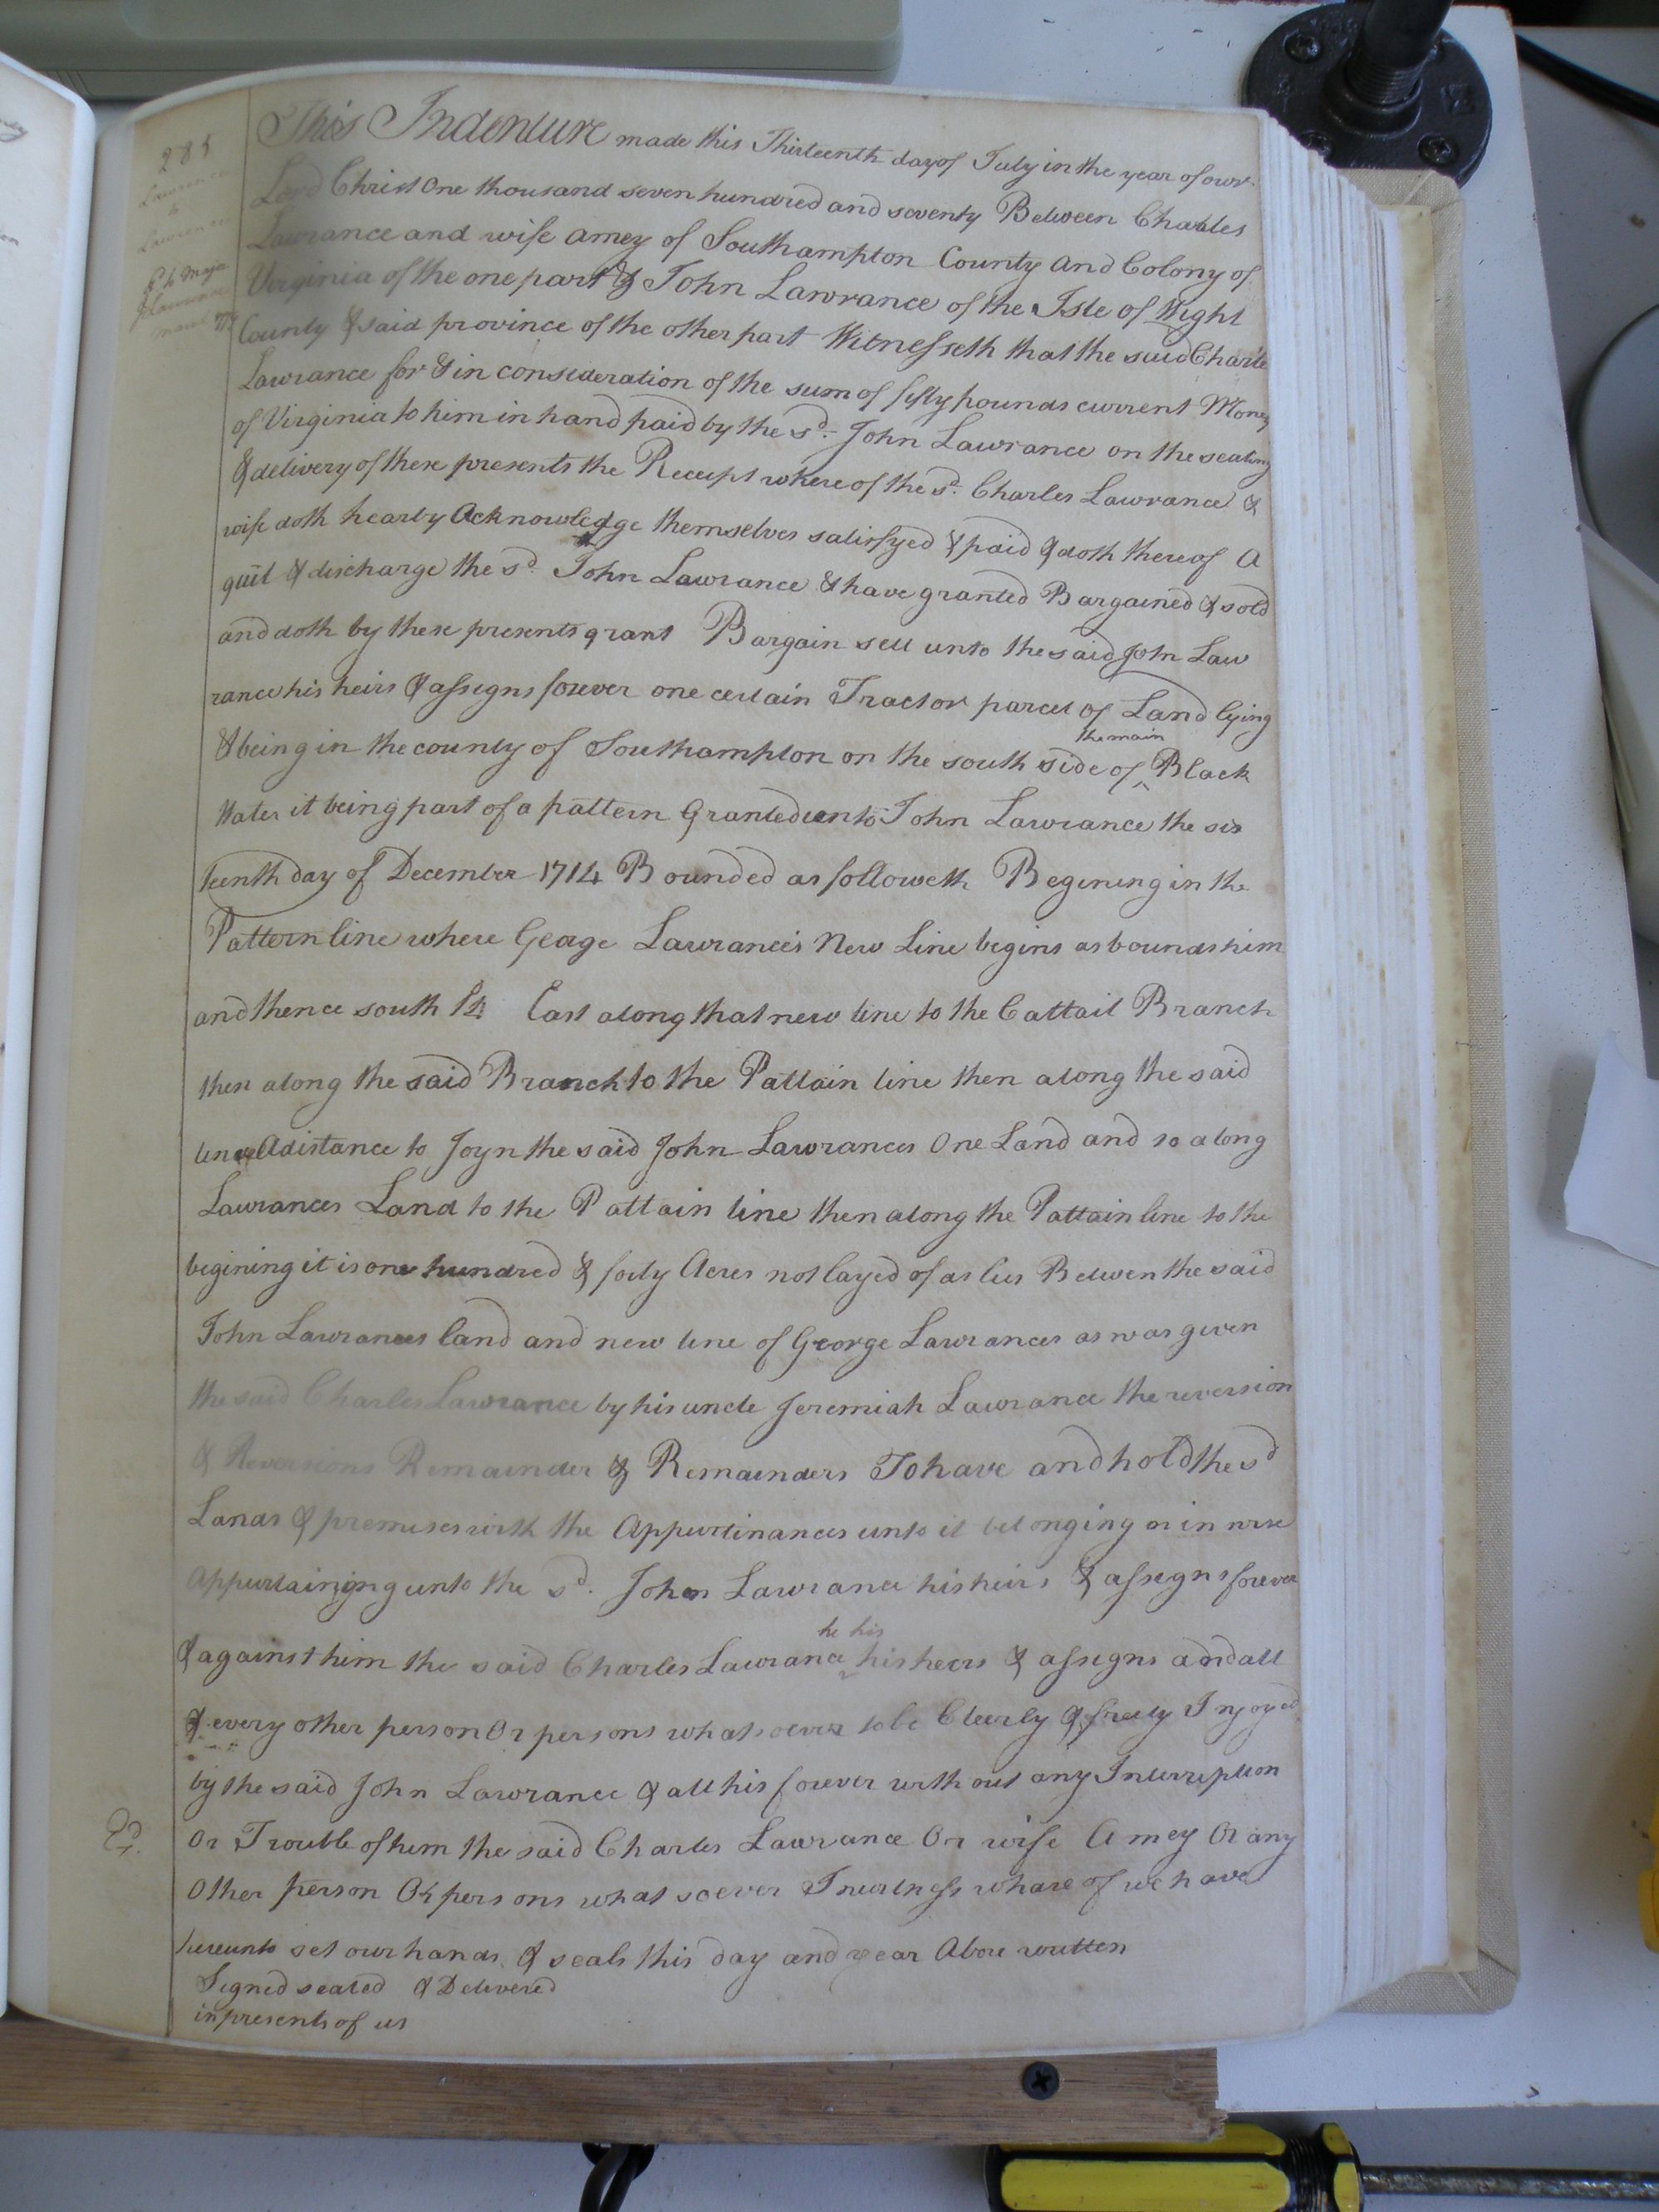 285
Lawrence
to
Lawrence
This Indenture made this Thirteenth day of July in the year of our
Lord Christ One thousand seven hundred and seventy Between Charles
Lawrance and wife Amey of Southampton County and Colony of
Virginia of the one part & John Lawrance of the Isle of Wight
County & said province of the other part Witnesseth that the said Charles
Lawrance for & in consideration of the sum of fifty pounds current Money
of Virginia to him in hand paid by the sd. John Lawrance on the sealing
& delivery of these presents the Receipt whereof the sd. Charles Lawrance &
wife doth hearby Acknowledge themselves satisfyed & paid & doth thereof A
quit & discharge the sd. John Lawrance & have granted Bargained & sold
and doth by these presents grant Bargain sell unto the said John Law
rance his heirs & assigns forever one certain Tract or parcel of Land lying
& being in the county of Southampton on the south side of the main Black
Water it being part of a pattern Granted unto John Lawrance the six
teenth day of December 1714 Bounded as followeth Begining in the
Pattern line where George Lawrance's New Line begins as bounds him
and thence south East along that new line to the Cattail Branch
then along the said Branch to the Pattain line then along the said
line Adistance to Joyn the said John Lawrances One Land and so along
Lawrances Land to the Pattain line then along the Pattain line to the
begining it is one hundred & forty Acres not layed of as lies Betwen the said
John Lawrances land and new line of George Lawrances as was given
the said Charles Lawrance by his uncle Jeremiah Lawrance the reversion
& Reversions Remainder & Remainders To have and hold the sd
Lands & premises with the Appurtinances unto it belonging or in wise
Appurtaining unto the sd. John Lawrance his heirs & assigns forever
& against him the said Charles Lawrance he his his heirs & assigns and all
& every other person Or persons whatsoever to be Cleerly & freely Injoyed
by the said John Lawrance & all his forever with out any Interruption
Or Trouble of him the said Charles Lawrance Or wife Amey Or any
Other person Or persons what soever In witness whare of we have
hereunto set our hands & seals this day and year Above written
Signed sealed & Delivered
in presents of us